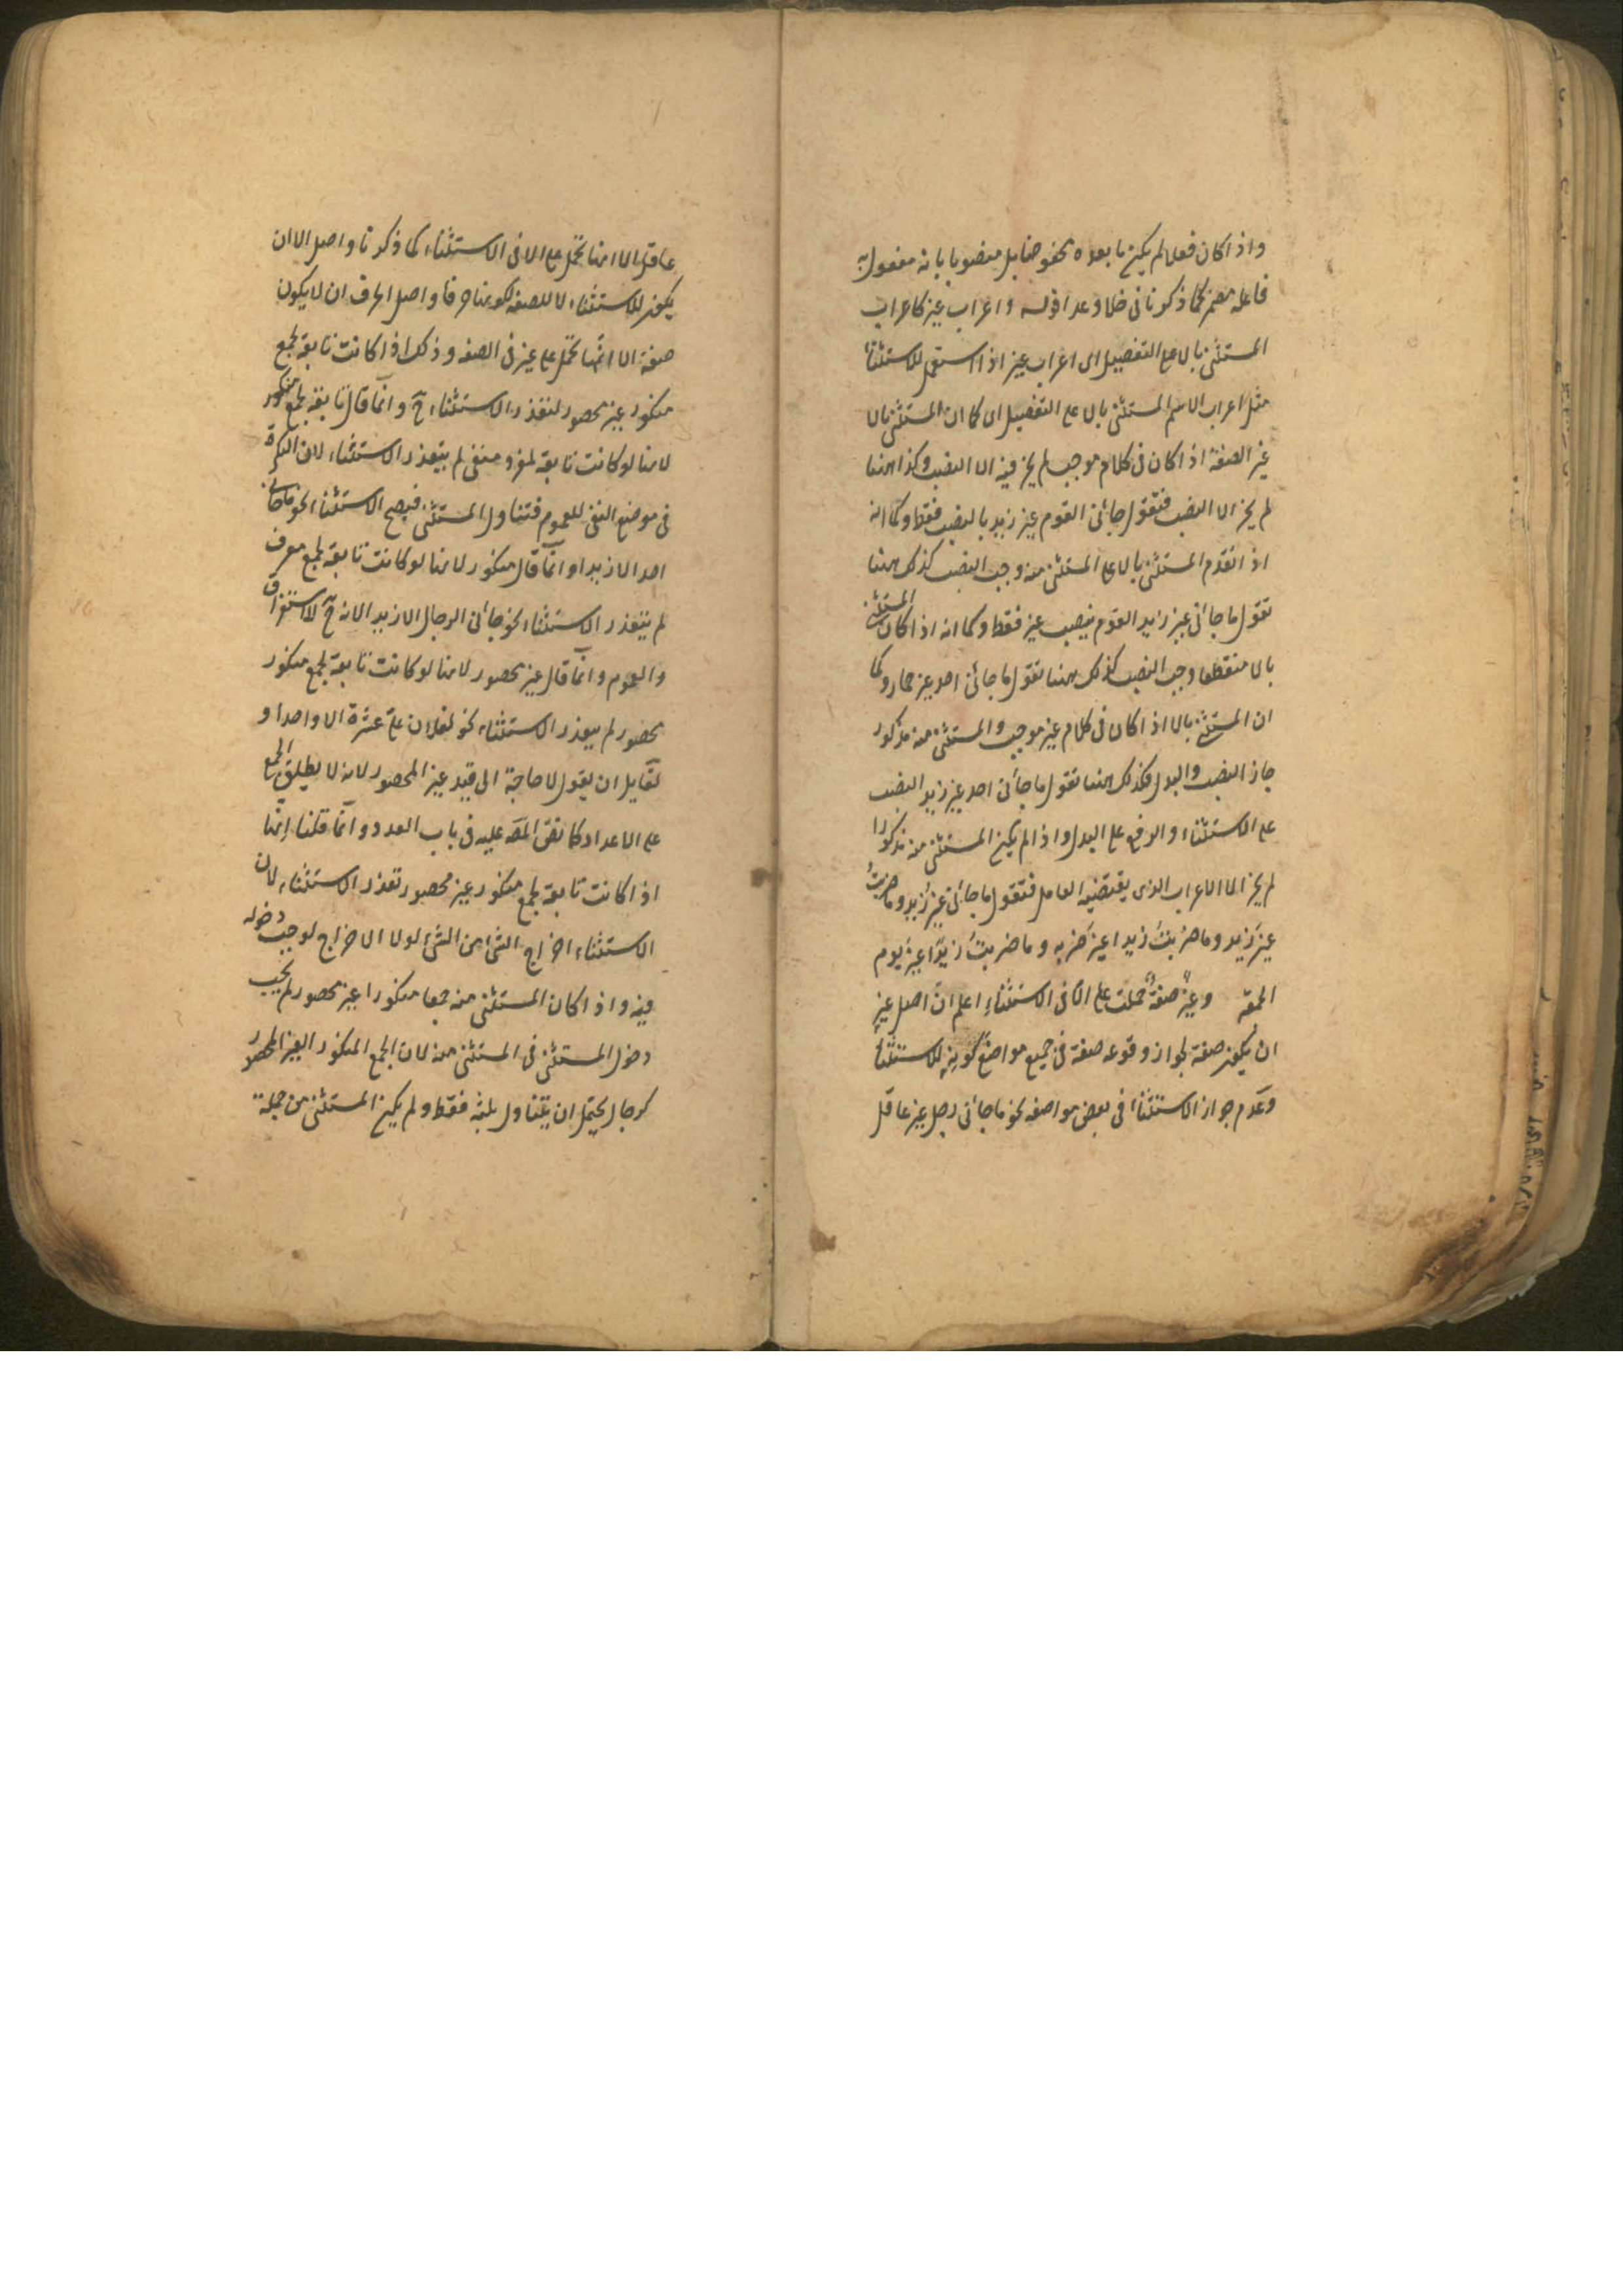 واذا كان فعلا لم يكن ما بعده مخفوضا بل منصوبا بانه مفعول به
فاعله مضمر كما ذكرنا فى خلا وعدا قوله واعراب غير كاعراب
المستثنى بالا على التفصيل اى اعراب غير اذا استعمل للاستثنا
مثل اعراب الاسم المستثنى بالا على التفصيل اى كما ان المستثنى بالا
غير الصفة اذا كان فى كلام موجب لم يجز فيه الا النصب وكذا ههنا
لم يجز الا النصب فتقول جائنى القوم غير زيد بالنصب فقط وكما انه
اذا تقدم المستثنى بالا على المستثنى منه وجب النصب كذلك ههنا
تقول ما جائنى غير زيد القوم بنصب غير فقط وكما انه اذا كان المستثنى
بالا منقطعا وجب النصب كذلك ههنا تقول ما جائنى احد غير حمار وكما
ان المستثنى بالا اذا كان فى كلام غير موجب والمستثنى منه مذكور
جاز النصب والبدل فكذلك ههنا تقول ما جائنى احد غير زيد النصب
على الاستثناء والرفع على البدل واذا لم يكن المستثنى منه مذكورا
لم يجز الا الاعراب الذى يقتضيه العامل فتقول ما جائنى غيرُ زيد وما ضربتُ
غيرَ زيد وما ضربتُ زيدا غيرَ ضربه وما ضربتُ زيدًا غيرَ يوم
الجمعة وغيرُ صفةٌ حملت على الا فى الاستثناءِ اعلم انّ اصل غيرٍ
ان يكون صفة لجواز وقوعه صفة فى جميع مواضع كونِهِ للاستثنا
وعدم جواز الاستثنا فى بعض مواضعه نحو ما جائنى رجل غير عاقل
عاقل الا انها تحمل على الا فى الاستثناء كما ذكرنا واصل الا ان
يكون للاستثناء لا للصفة لكونها حرفا واصل الحرف ان لا يكون
صفة الا انّها تحمل على غير فى الصفة وذلك اذا كانت تابعة لجمع
منكور غير محصور لتعذر الاستثناء ح وانّما قال تابعة لجمع منكور
لانها لو كانت تابعة لمفرد منفى لم يتعذر الاستثناء لان النكرة
فى موضع النفى للعموم فتناول المستثنى فيصح الاستثناء نحو ما جائنى
احد الا زيدا وانّما قال منكور لانها لو كانت تابعة لجمع معرف
لم يتعذر الاستثناء نحو جائنى الرجال الا زيد الانه ح لاستغراق
والعموم وانّما قال غير محصور لانها لو كانت تابعة لجمع منكور
محصور لم يتعذر الاستثناء نحو لفلان علىّ عشرة الا واحدا و
لقايل ان يقول لا حاجة الى قيد غير المحصور لانه لا يطلق الجمع
على الاعداد كما نصّ المصّ عليه فى باب العدد وانّما قلنا انّها
اذا كانت تابعة لجمع منكور غير محصور تعذر الاستثناء لان
الاستثناء اخراج الشئ من الشئ لولا الاخراج لوجب دخوله
فيه واذا كان المستثنى منه جمعا منكورا غير محصور لم يجب
دخول المستثنى فى المستثنى منه لان الجمع المنكور الغير المحصور
كرجال يحتمل ان يتناول ثلثة فقط ولم يكن المستثنى من جملة